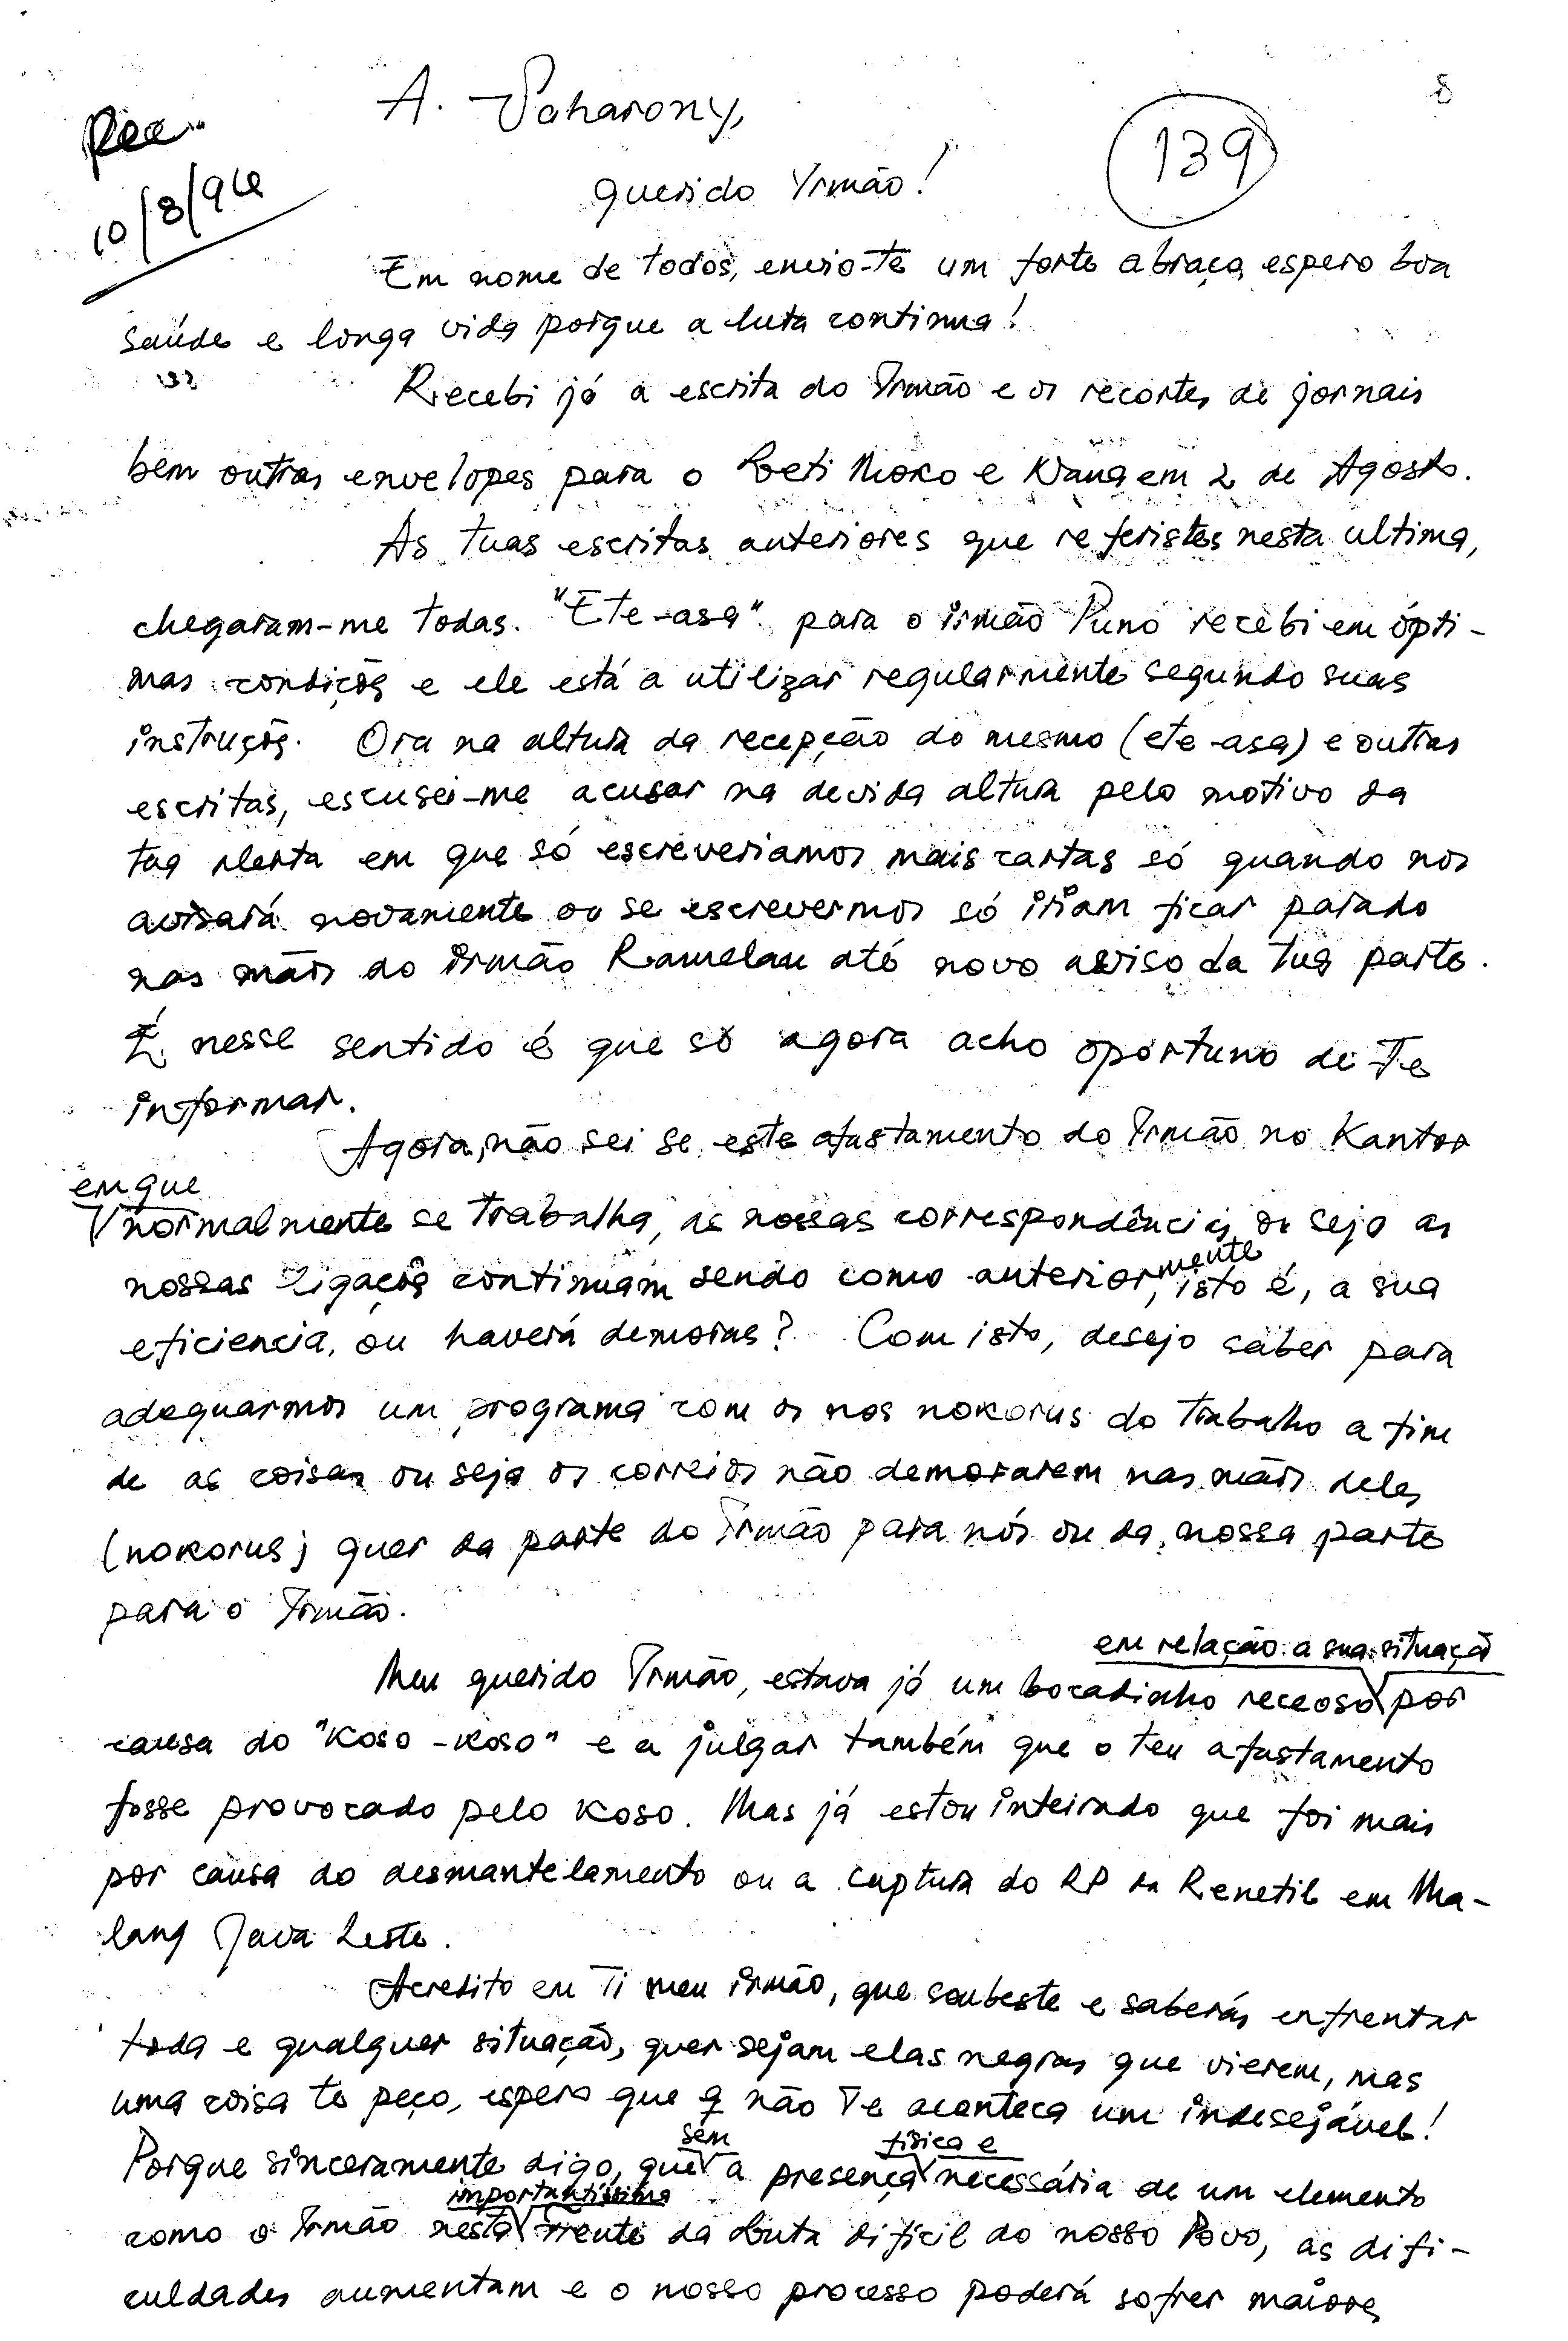 8
A. Saharony,
139
Rec.
10/8/94
Querido Irmão!
Em nome de todos, envio-te um forte abraço, espero boa
saúde e longa vida porque a luta continua!
Recebi já a escrita do Irmão e os recortes de jornais
bem outras envelopes para o Leti Moko e Nana em 2 de Agosto.
As tuas escritas anteriores que referistes nesta ultima,
chegaram-me todas. "Ete-asa" para o irmão Puno recebi em ópti-
mas condições e ele está a utilizar regularmente segundo suas
instruções. Ora na altura da recepção do mesmo (ete-asa) e outras
escritas, escusei-me acusar na devida altura pelo motivo da
tua alerta em que só escreveriamos mais cartas só quando nos
avisará novamente ou se escrevermos só iriam ficar parado
nas mãos do irmão Ramelau até novo aviso da tua parte.
É nesse sentido é que só agora acho oportuno de Te
informar.
Agora, não sei se este afastamento do Irmão no Kantor
em que
normalmente se trabalha, as nossas correspondências ou seja as
nossas ligações continuam sendo como anteriormente, isto é, a sua
eficiencia, ou haverá demoras? Com isto, desejo saber para
adequarmos um programa com os nos nokorus do trabalho a fim
de as coisas ou seja os correios não demorarem nas mãos deles
(nokorus) quer da parte do Irmão para nós ou da nossa parte
para o Irmão.
em relação a sua situação
Meu querido Irmão, estava já um bocadinho receoso por
causa do "Koso-koso" e a julgar também que o teu afastamento
fosse provocado pelo koso. Mas já estou inteirado que foi mais
por causa do desmantelamento ou a captura do RP da Renetil em Ma-
lang Java Leste.
Acredito em Ti meu irmão, que soubeste e saberás enfrentar
toda e qualquer situação, quer sejam elas negras que vierem, mas
uma coisa te peço, espero que q não Te aconteça um indesejável!
sem física e
Porque sinceramente digo, que a presença necessária de um elemento
importantíssima
como o Irmão nesta frente da Luta difícil do nosso Povo, as difi-
culdades aumentam e o nosso processo poderá sofrer maiores